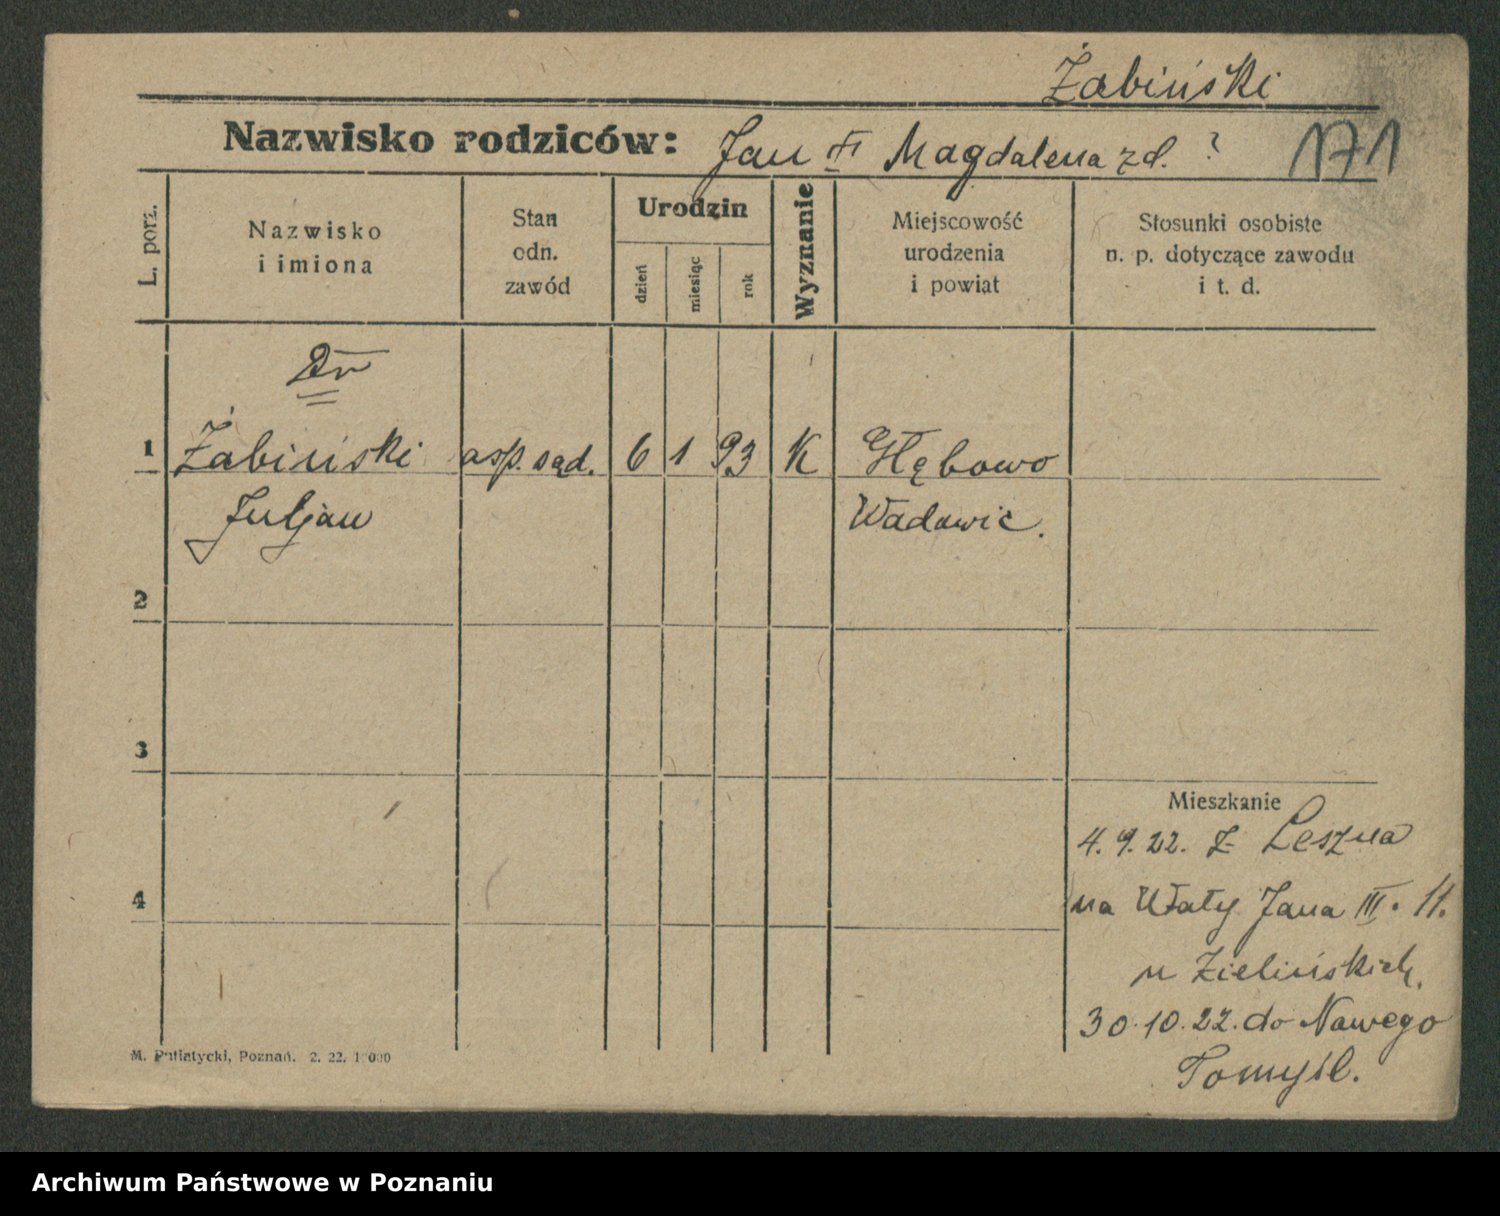 Żabiński
Nazwisko rodziców: Jan † Magdalena zd. ?
171
L. porz.
Nazwisko
i imiona
Stan
odn.
zawód
Urodzin
dzień
miesiąc
rok
Wyznanie
Miejscowość
urodzenia
i powiat
Stosunki osobiste
n. p. dotyczące zawodu
i t. d.
Dr
1 Żabiński asp. sąd. 6 1 93 K Głębowo
Juljan Wadowic.
2
3
Mieszkanie
4. 9. 22. z Leszna
4
na Wały Jana III. 11.
u Zielińskich.
30.10.22. do Nowego
Tomyśl.
M. Putiatycki, Poznań. 2. 22.
Archiwum Państwowe w Poznaniu